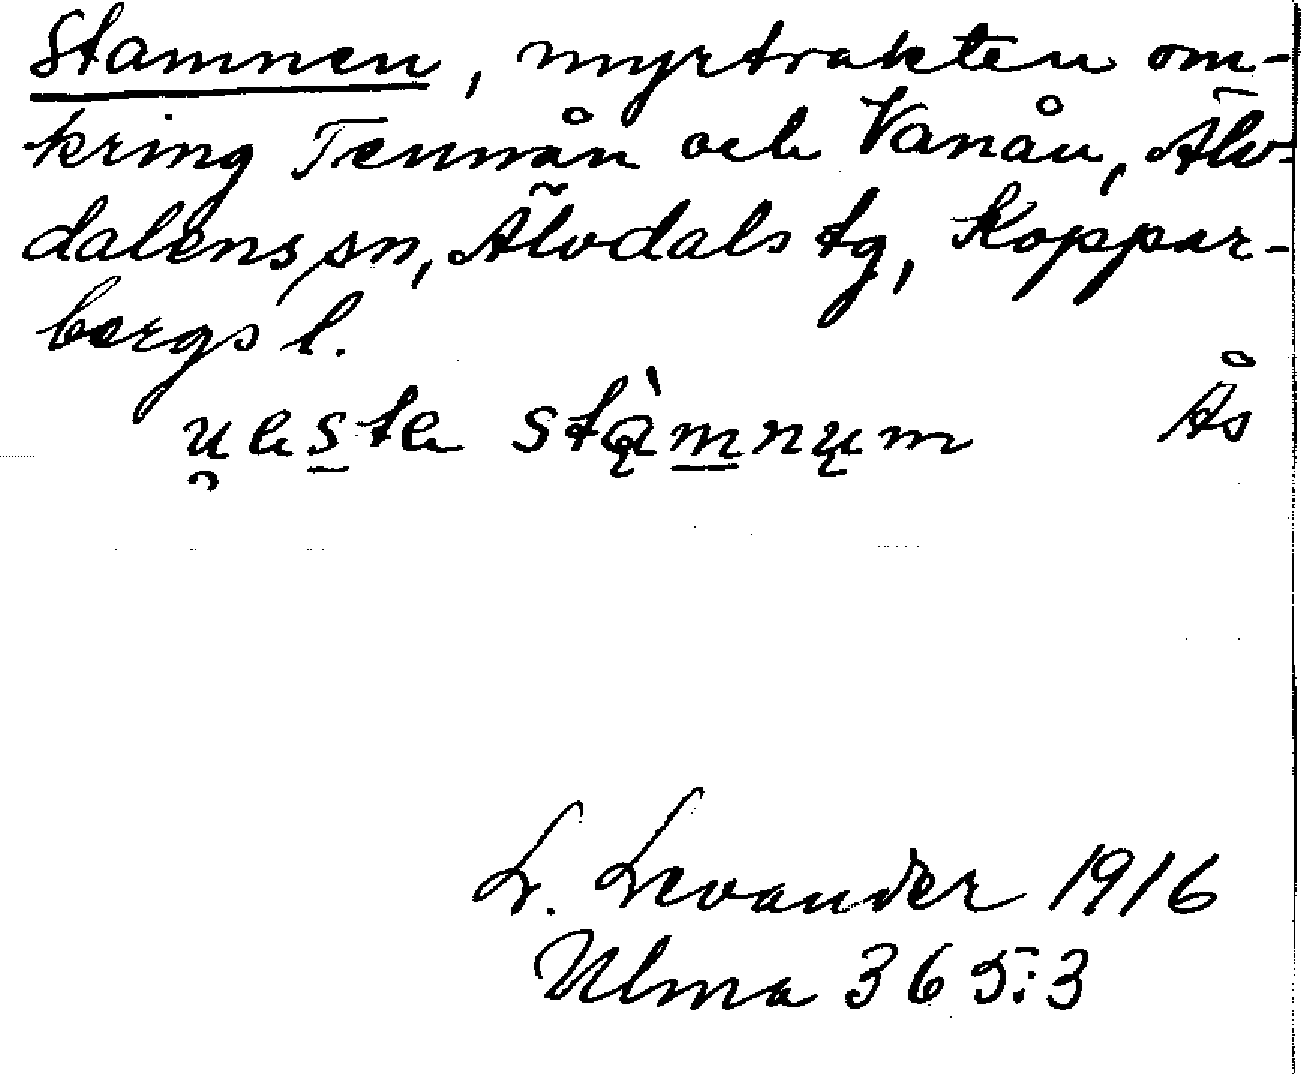 Stamnen, myrtrakten om-
kring Tennån och Vanån, Älv-
dalens sn, Älvdals tg, Koppar-
bergs l.
Ås
L. Levander 1916
Ulma 365:3